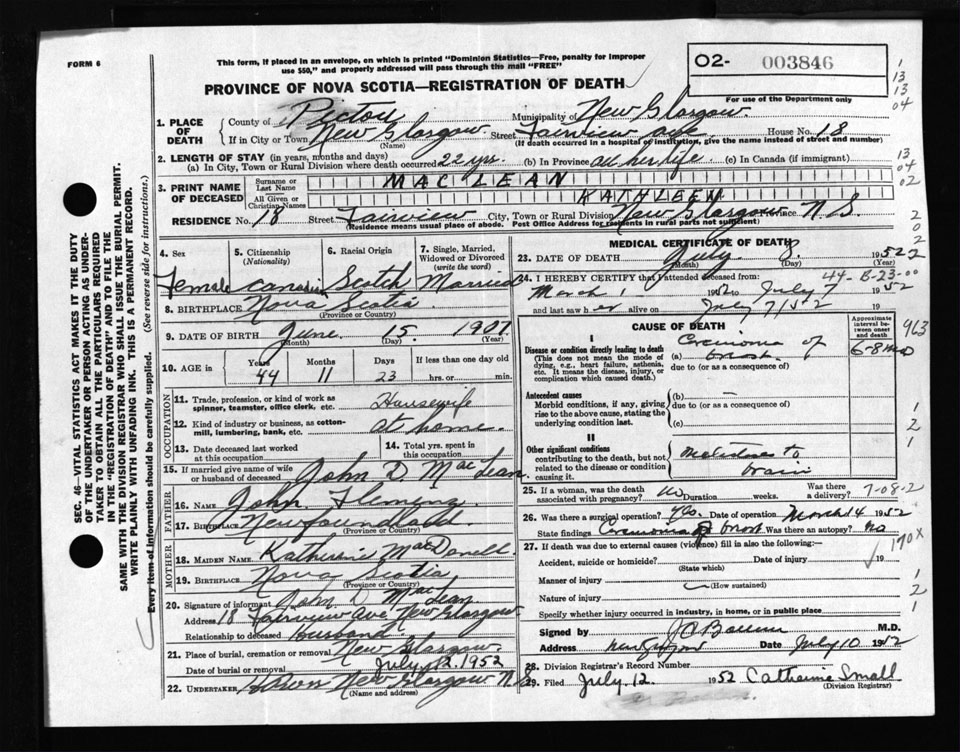 FORM 6
This form, if placed in an envelope, on which is printed "Dominion Statistics—Free, penalty for improper
use $50," and properly addressed will pass through the mail "FREE"
PROVINCE OF NOVA SCOTIA—REGISTRATION OF DEATH
02- 003846
For use of the Department only
1
13
13
04
13
04
02
2
0
2
2
1. PLACE OF DEATH
County of Pictou Municipality of New Glasgow
If in City or Town New Glasgow (Name) Street Fairview ave House No. 18
(If death occurred in a hospital or institution, give the name instead of street and number)
2. LENGTH OF STAY (in years, months and days)
(a) In City, Town or Rural Division where death occurred 22 yrs. (b) In Province all her life. (c) In Canada (if immigrant)
3. PRINT NAME OF DECEASED
Surname or Last Name MACLEAN
All Given or Christian Names KATHLEEN
RESIDENCE No. 18 Street Fairview City, Town or Rural Division New Glasgow Province N.S.
(Residence means usual place of abode. Post Office Address for residents in rural parts not sufficient)
4. Sex Female
5. Citizenship (Nationality)
6. Racial Origin Scotch
7. Single, Married, Widowed or Divorced (write the word) Married
8. BIRTHPLACE Nova Scotia
(Province or Country)
9. DATE OF BIRTH June 15 1907
(Month) (Day) (Year)
10. AGE in Years 44 Months 11 Days 23 If less than one day old hrs. or min.
OCCUPATION
11. Trade, profession or kind of work as spinner, teamster, office clerk, etc. Housewife
12. Kind of industry or business, as cotton-mill, lumbering, bank, etc. at home.
13. Date deceased last worked at this occupation
14. Total yrs. spent in this occupation
15. If married give name of wife or husband of deceased John D. MacLean
FATHER
16. NAME John Fleming
17. BIRTHPLACE Newfoundland
(Province or Country)
MOTHER
18. MAIDEN NAME Katherine MacDonell
19. BIRTHPLACE Nova Scotia
(Province or Country)
20. Signature of informant John D. MacLean
Address 18 Fairview Ave New Glasgow
Relationship to deceased Husband.
21. Place of burial, cremation or removal New Glasgow.
Date of burial or removal July 12, 1952
22. UNDERTAKER New Glasgow N.S.
(Name and address)
MEDICAL CERTIFICATE OF DEATH
23. DATE OF DEATH July 8 1952
(Month) (Day) (Year)
44-B-23-00
24. I HEREBY CERTIFY that I attended deceased from:
March 1 1952 to July 7 1952
and last saw her alive on July 7/52 19
CAUSE OF DEATH
Approximate interval between onset and death
963
I
Disease or condition directly leading to death
(This does not mean the mode of dying, e.g., heart failure, asthenia, etc. It means the disease, injury, or complication which caused death.
(a) of
due to (or as a consequence of)
6-8 mos
Antecedent causes
Morbid conditions, if any, giving rise to the above cause, stating the underlying condition last.
(b) —
due to (or as a consequence of)
(c)
1
2
II
Other significant conditions
contributing to the death, but not related to the disease or condition causing it.
to brain
1
25. If a woman, was the death associated with pregnancy? No Duration weeks. Was there a delivery?
7-08-2
26. Was there a surgical operation? yes. Date of operation March 14 1952
State findings of Was there an autopsy? no
27. If death was due to external causes (violence) fill in also the following:
190X
Accident, suicide or homicide? Date of injury 19
(State which)
Manner of injury
(How sustained)
Nature of injury
Specify whether injury occurred in industry, in home, or in public place
1
2
1
Signed by M.D.
Address New Glasgow Date July 10 1952
28. Division Registrar's Record Number
29. Filed July 12 1952 Catharine Small
(Division Registrar)
SEC. 46—VITAL STATISTICS ACT MAKES IT THE DUTY
OF THE UNDERTAKER OR PERSON ACTING AS UNDER-
TAKER TO OBTAIN ALL THE PARTICULARS REQUIRED
IN THE "REGISTRATION OF DEATH" AND TO FILE THE
SAME WITH THE DIVISION REGISTRAR WHO SHALL ISSUE THE BURIAL PERMIT.
WRITE PLAINLY WITH UNFADING INK. THIS IS A PERMANENT RECORD.
Every item of information should be carefully supplied. (See reverse side for instructions.)